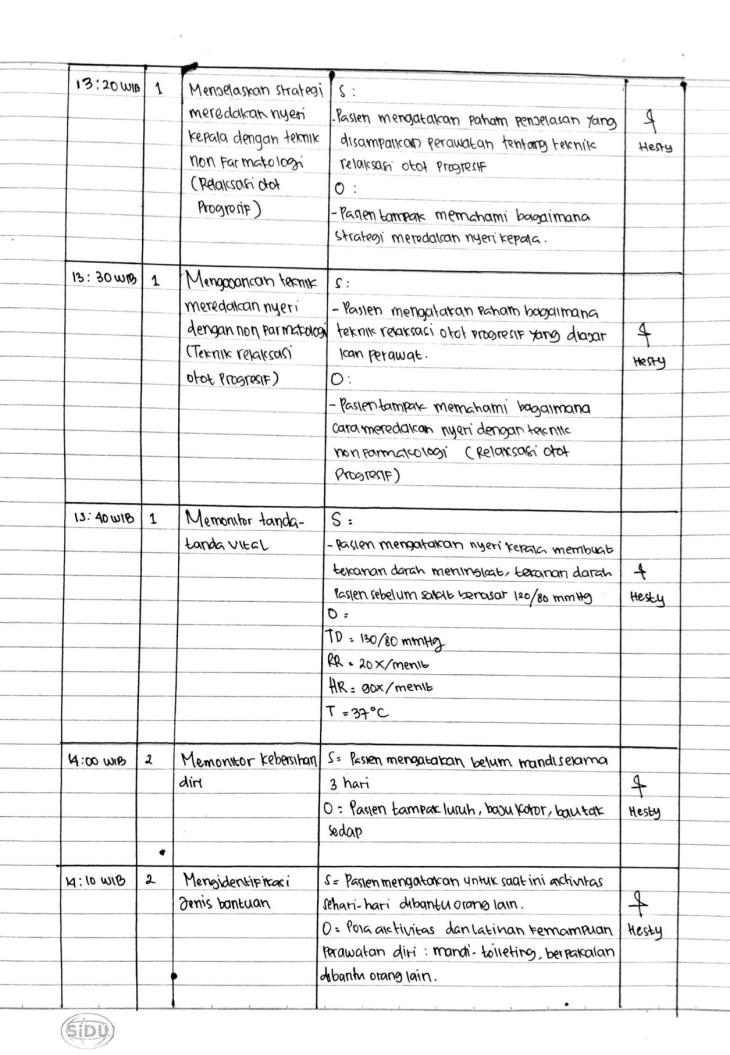 13:20 WIB 1 Menjelaskan strategi
meredakan nyeri
kepala dengan teknik
non Farmatologi
(Relaksasi otot
Progresif)
S :
- Pasien mengatakan paham penjelasan yang
disampaikan perawatan tentang teknik
relaksasi otot Progresif
O :
- Pasien tampak memahami bagaimana
strategi meredakan nyeri kepala.
Hesty
13:30 WIB 1 Mengajarkan teknik
meredakan nyeri
dengan non Farmakologi
(Teknik relaksasi
otot Progresif)
S :
- Pasien mengatakan Paham bagaimana
teknik relaksasi otot progresif yang diajar
kan perawat.
O :
- Pasien tampak memahami bagaimana
cara meredakan nyeri dengan teknik
non farmakologi (Relaksasi otot
Progresif)
Hesty
13:40 WIB 1 Memonitor tanda-
tanda vital
S :
- Pasien mengatakan nyeri kepala membuat
tekanan darah meningkat, tekanan darah
Pasien sebelum sakit berkisar 120/80 mmHg
O :
TD = 130/80 mmHg
RR = 20x/menit
HR = 90x/menit
T = 37°C
Hesty
14:00 WIB 2 Memonitor kebersihan
diri
S = Pasien mengatakan belum mandi selama
3 hari
O = Pasien tampak lusuh, baju kotor, bau tak
sedap
Hesty
14:10 WIB 2 Mengidentifikasi
Jenis bantuan
S = Pasien mengatakan untuk saat ini aktivitas
sehari-hari dibantu orang lain.
O = Pola aktivitas dan latihan kemampuan
Perawatan diri : mandi - toileting, berpakaian
dibantu orang lain.
Hesty
SiDU